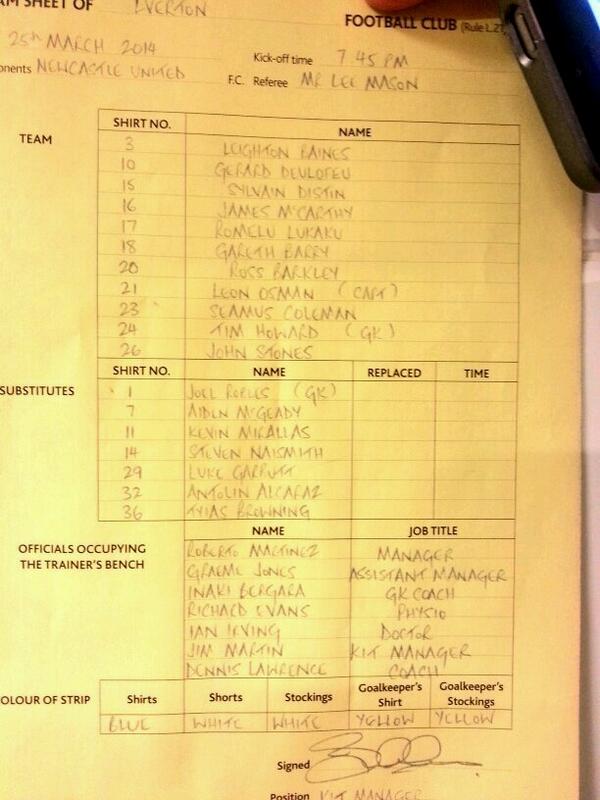 AM SHEET OF EVERTON FOOTBALL CLUB (Rule L.21
25th MARCH 2014 Kick-off time 7.45 PM
nents NEWCASTLE UNITED F.C. Referee MR LEE MASON
TEAM SHIRT NO. NAME
3 LEIGHTON BAINES
10 GERARD DEULOFEU
15 SYLVAIN DISTIN
16 JAMES McCARTHY
17 ROMELU LUKAKU
18 GARETH BARRY
20 ROSS BARKLEY
21 LEON OSMAN (CAPT)
23 SEAMUS COLEMAN
24 TIM HOWARD (GK)
26 JOHN STONES
SUBSTITUTES SHIRT NO. NAME REPLACED TIME
1 JOEL ROBLES (GK)
7 AIDEN McGEADY
11 KEVIN MIRALLAS
14 STEVEN NAISMITH
29 LUKE GARBUTT
32 ANTOLIN ALCARAZ
36 TYIAS BROWNING
OFFICIALS OCCUPYING THE TRAINER'S BENCH NAME JOB TITLE
ROBERTO MARTINEZ MANAGER
GRAEME JONES ASSISTANT MANAGER
INAKI BERGARA GK COACH
RICHARD EVANS PHYSIO
IAN IRVING DOCTOR
JIM MARTIN KIT MANAGER
DENNIS LAWRENCE COACH
OLOUR OF STRIP Shirts Shorts Stockings Goalkeeper's Shirt Goalkeeper's Stockings
BLUE WHITE WHITE YELLOW YELLOW
Signed
Position KIT MANAGER